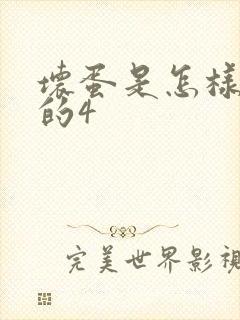 壞蛋是怎樣
的4
完美世界影視